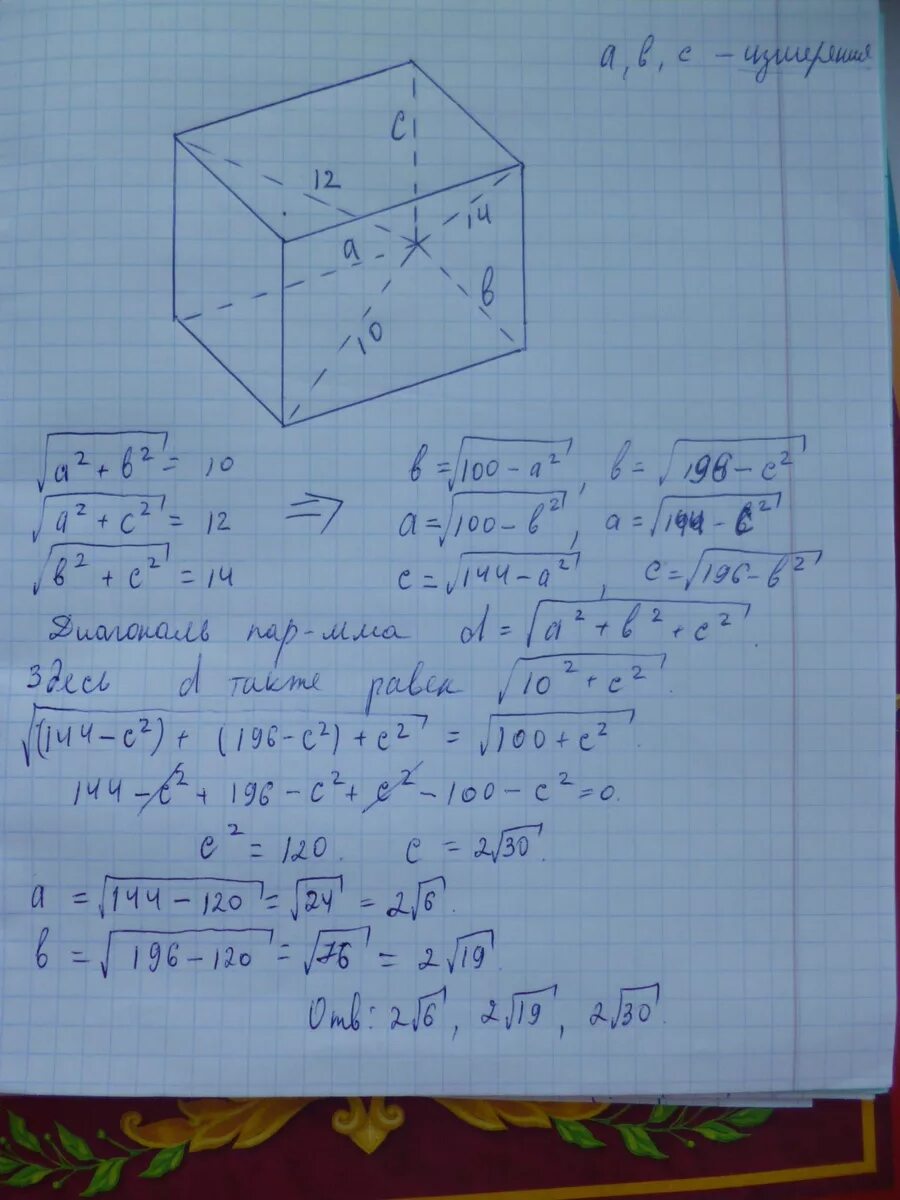 а, в, с – измерения
С
12
14
а
в
10
√(a² + в²) = 10
√(a² + c²) = 12
√(в² + c²) = 14
⇒
в = √(100 – a²), в = √(196 – c²)
а = √(100 – в²), а = √(144 – c²)
с = √(144 – a²), с = √(196 – в²)
Диагональ пар-мма d = √(a² + в² + c²)
Здесь d также равен √(10² + c²).
√((144 – c²) + (196 – c²) + c²) = √(100 + c²).
144 – c² + 196 – c² + c² – 100 – c² = 0.
c² = 120. c = 2√30.
а = √(144 – 120) = √24 = 2√6.
в = √(196 – 120) = √76 = 2√19.
Отв: 2√6, 2√19, 2√30.